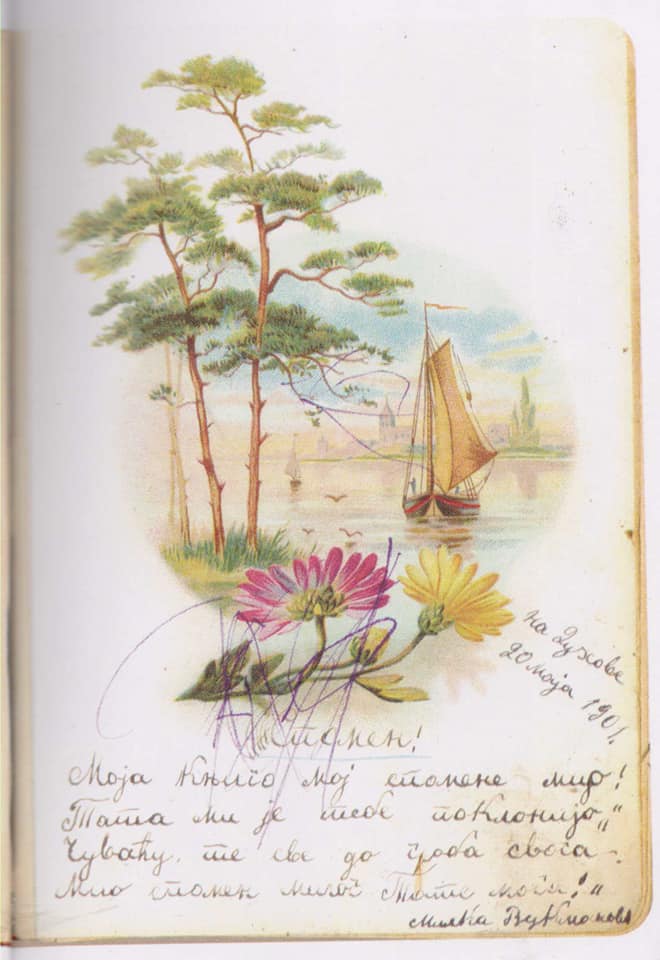 на Духове
20 маја 1901.
Спомен!
Моја књиго мој спомене мио!
Тата ми је тебе поклонијо„"
Чуваћу те све до гроба свога -
Мио спомен милог Тате мога!„
Милка Вукманов